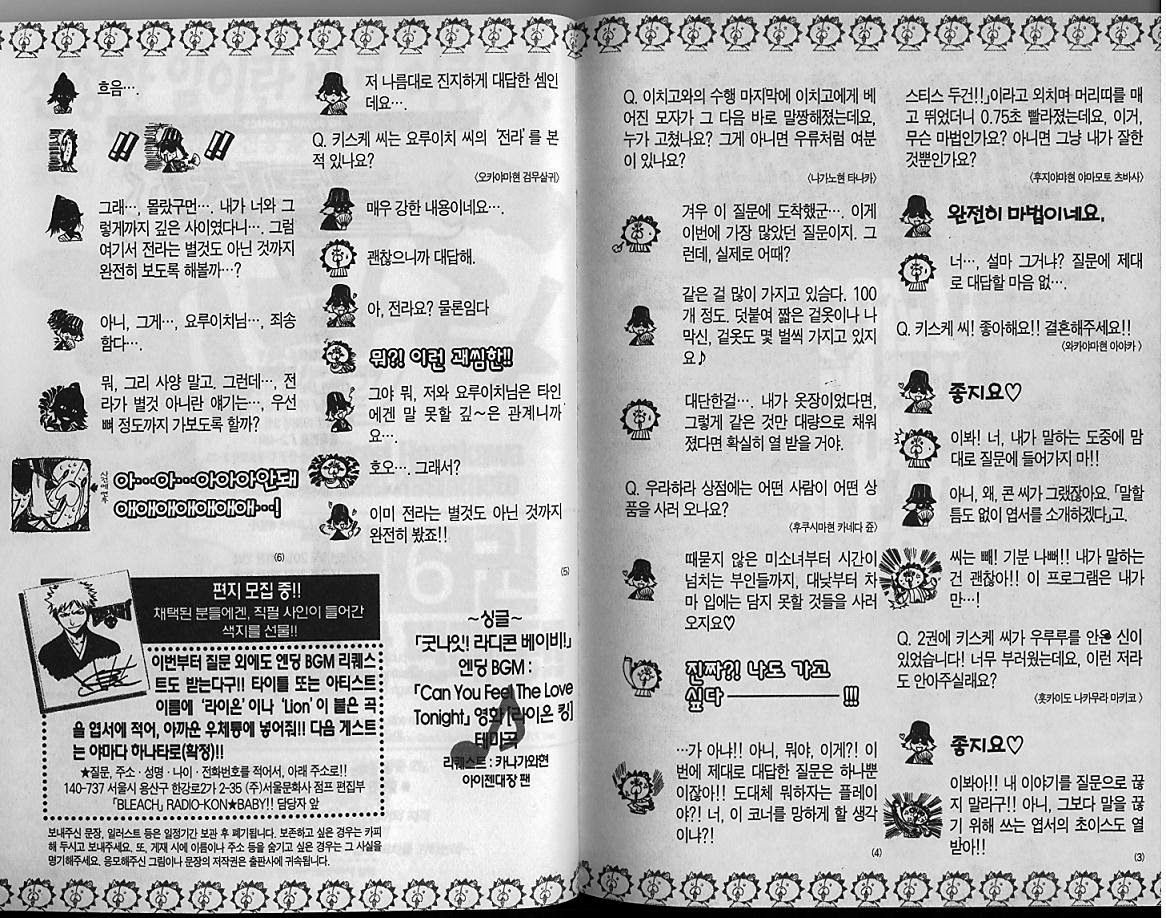 스티스 두건!!」이라고 외치며 머리띠를 매
고 뛰었더니 0.75초 빨라졌는데요, 이거,
무슨 마법인가요? 아니면 그냥 내가 잘한
것뿐인가요?
〈후지야먀현 야마모토 츠바사〉
완전히 마법이네요.
너…, 설마 그거냐? 질문에 제대
로 대답할 마음 없….
Q. 키스케 씨! 좋아해요!! 결혼해주세요!!
〈와카야마현 아야카〉
좋지요♡
이봐! 너, 내가 말하는 도중에 맘
대로 질문에 들어가지 마!!
아니, 왜, 콘 씨가 그랬잖아요. 「말할
틈도 없이 엽서를 소개하겠다」고.
씨는 빼! 기분 나뻐!! 내가 말하는
건 괜찮아!! 이 프로그램은 내가
만…!
Q. 2권에 키스케 씨가 우루루를 안은 신이
있었습니다! 너무 부러웠는데요, 이런 저라
도 안아주실래요?
〈홋카이도 나카무라 마키코〉
좋지요♡
이봐아!! 내 이야기를 질문으로 끊
지 말라구!! 아니, 그보다 말을 끊
기 위해 쓰는 엽서의 초이스도 열
받아!!
(3)
Q. 이치고와의 수행 마지막에 이치고에게 베
어진 모자가 그 다음 바로 말짱해졌는데요,
누가 고쳤나요? 그게 아니면 우류처럼 여분
이 있나요?
〈나가노현 타나카〉
겨우 이 질문에 도착했군…. 이게
이번에 가장 많았던 질문이지. 그
런데, 실제로 어때?
같은 걸 많이 가지고 있슴다. 100
개 정도. 덧붙여 짧은 겉옷이나 나
막신, 겉옷도 몇 벌씩 가지고 있지
요♪
대단한걸…. 내가 옷장이었다면,
그렇게 같은 것만 대량으로 채워
졌다면 확실히 열 받을 거야.
Q. 우라하라 상점에는 어떤 사람이 어떤 상
품을 사러 오나요?
〈후쿠시마현 카네다 쥰〉
때묻지 않은 미소녀부터 시간이
넘치는 부인들까지, 대낮부터 차
마 입에는 담지 못할 것들을 사러
오지요♡
진짜?! 나도 가고
싶다――――!!!
…가 아냐!! 아니, 뭐야, 이게?! 이
번에 제대로 대답한 질문은 하나뿐
이잖아!! 도대체 뭐하자는 플레이
야?! 너, 이 코너를 망하게 할 생각
이냐?!
(4)
저 나름대로 진지하게 대답한 셈인
데요….
Q. 키스케 씨는 요루이치 씨의 '전라'를 본
적 있나요?
〈오카야마현 검무살귀〉
매우 강한 내용이네요….
괜찮으니까 대답해.
아, 전라요? 물론임다
뭐?! 이런 괘씸한!!
그야 뭐, 저와 요루이치님은 타인
에겐 말 못할 깊~은 관계니까
요….
호오…, 그래서?
이미 전라는 별것도 아닌 것까지
완전히 봤죠!!
(5)
~싱글~
「굿나잇! 라디콘 베이비!」
엔딩 BGM :
「Can You Feel The Love
Tonight」 영화 [라이온 킹]
테마곡
리퀘스트 : 카나가와현
아이젠대장 팬
흐음….
!! !!
그래…, 몰랐구먼…. 내가 너와 그
렇게까지 깊은 사이였다니…. 그럼
여기서 전라는 별것도 아닌 것까지
완전히 보도록 해볼까…?
아니, 그게…, 요루이치님…, 죄송
함다….
뭐, 그리 사양 말고. 그런데…, 전
라가 별것 아니란 얘기는…, 우선
뼈 정도까지 가보도록 할까?
아…아…아아아안돼
애애애애애애애…!
(6)
편지 모집 중!!
채택된 분들에겐, 직필 사인이 들어간
색지를 선물!!
이번부터 질문 외에도 엔딩 BGM 리퀘스
트도 받는다구!! 타이틀 또는 아티스트
이름에 '라이온'이나 'Lion'이 붙은 곡
을 엽서에 적어, 아까운 우체통에 넣어줘!! 다음 게스트
는 야마다 하나타로(확정)!!
★질문, 주소·성명·나이·전화번호를 적어서, 아래 주소로!!
140-737 서울시 용산구 한강로2가 2-35 (주)서울문화사 점프 편집부
「BLEACH」 RADIO-KON★BABY!! 담당자 앞
보내주신 문장, 일러스트 등은 일정기간 보관 후 폐기됩니다. 보존하고 싶은 경우는 카피
해 두시고 보내주세요. 또, 게재 시에 이름이나 주소 등을 숨기고 싶은 경우는 그 사실을
명기해주세요. 응모해주신 그림이나 문장의 저작권은 출판사에 귀속됩니다.